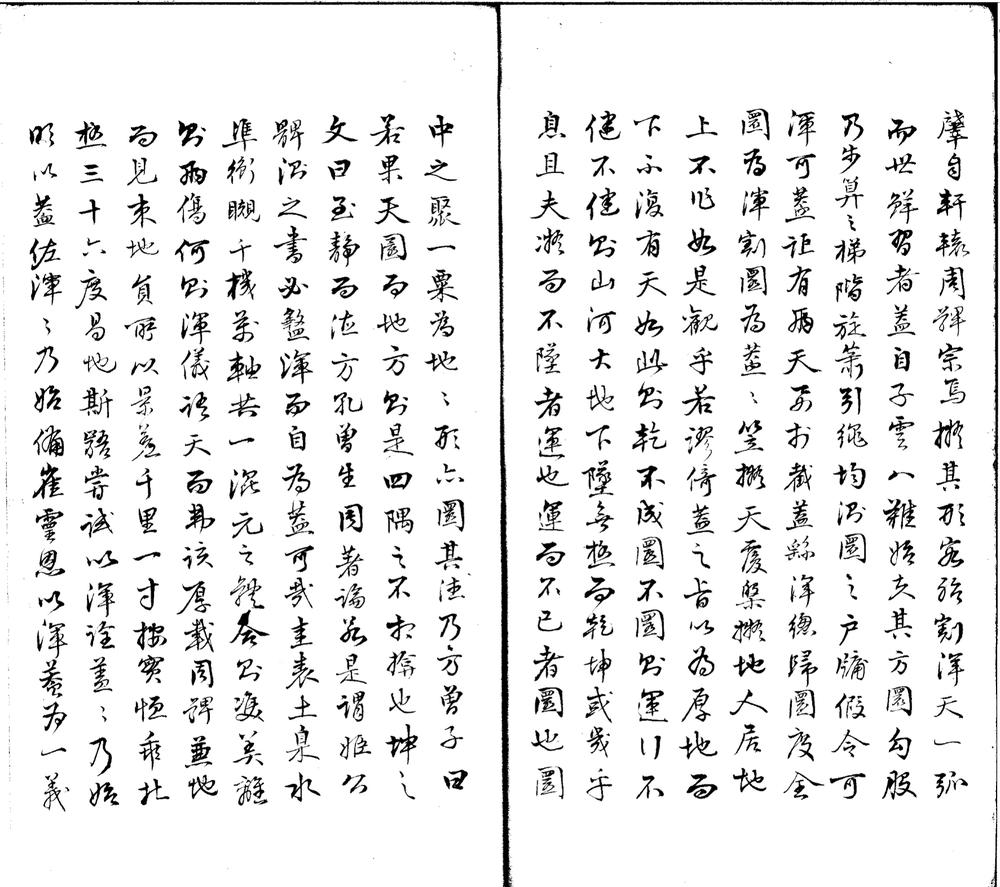 肇自軒轅周髀宗焉擬其形容殆割渾天一弧
而世鮮習者蓋自子雲八難始失其方圜勾股
乃步筭〻梯階旋簫引繩均測圜之戶牖假令可
渾可蓋詎有兩天要於截蓋繇渾總歸圜度全
圜為渾割圜為蓋〻笠擬天覆槃擬地人居地
上不作如是觀乎若謬倚蓋之旨以為厚地而
下不復有天如此則乾不成圜不圜則運行不
健不健則山河大地下墜無極而乾坤或幾乎
息且夫凝而不墜者運也運而不已者圜也圜
中之聚一粟為地〻形亦圜其德乃方曾子曰
若果天圜而地方則是四隅之不相揜也坤之
文曰至靜而德方孔曾生周著論若是謂姬公
髀測之書必盭渾而自為蓋可哉圭表土臬水
準衡䂓千機萬軸共一混元之體合則雙美離
則兩傷何則渾儀語天而弗該厚載周髀兼地
而見束地員所以景差千里一寸按實恆乖北
極三十六度易地斯殊嘗試以渾詮蓋〻乃始
明以蓋佐渾〻乃始備崔靈恩以渾蓋為一義